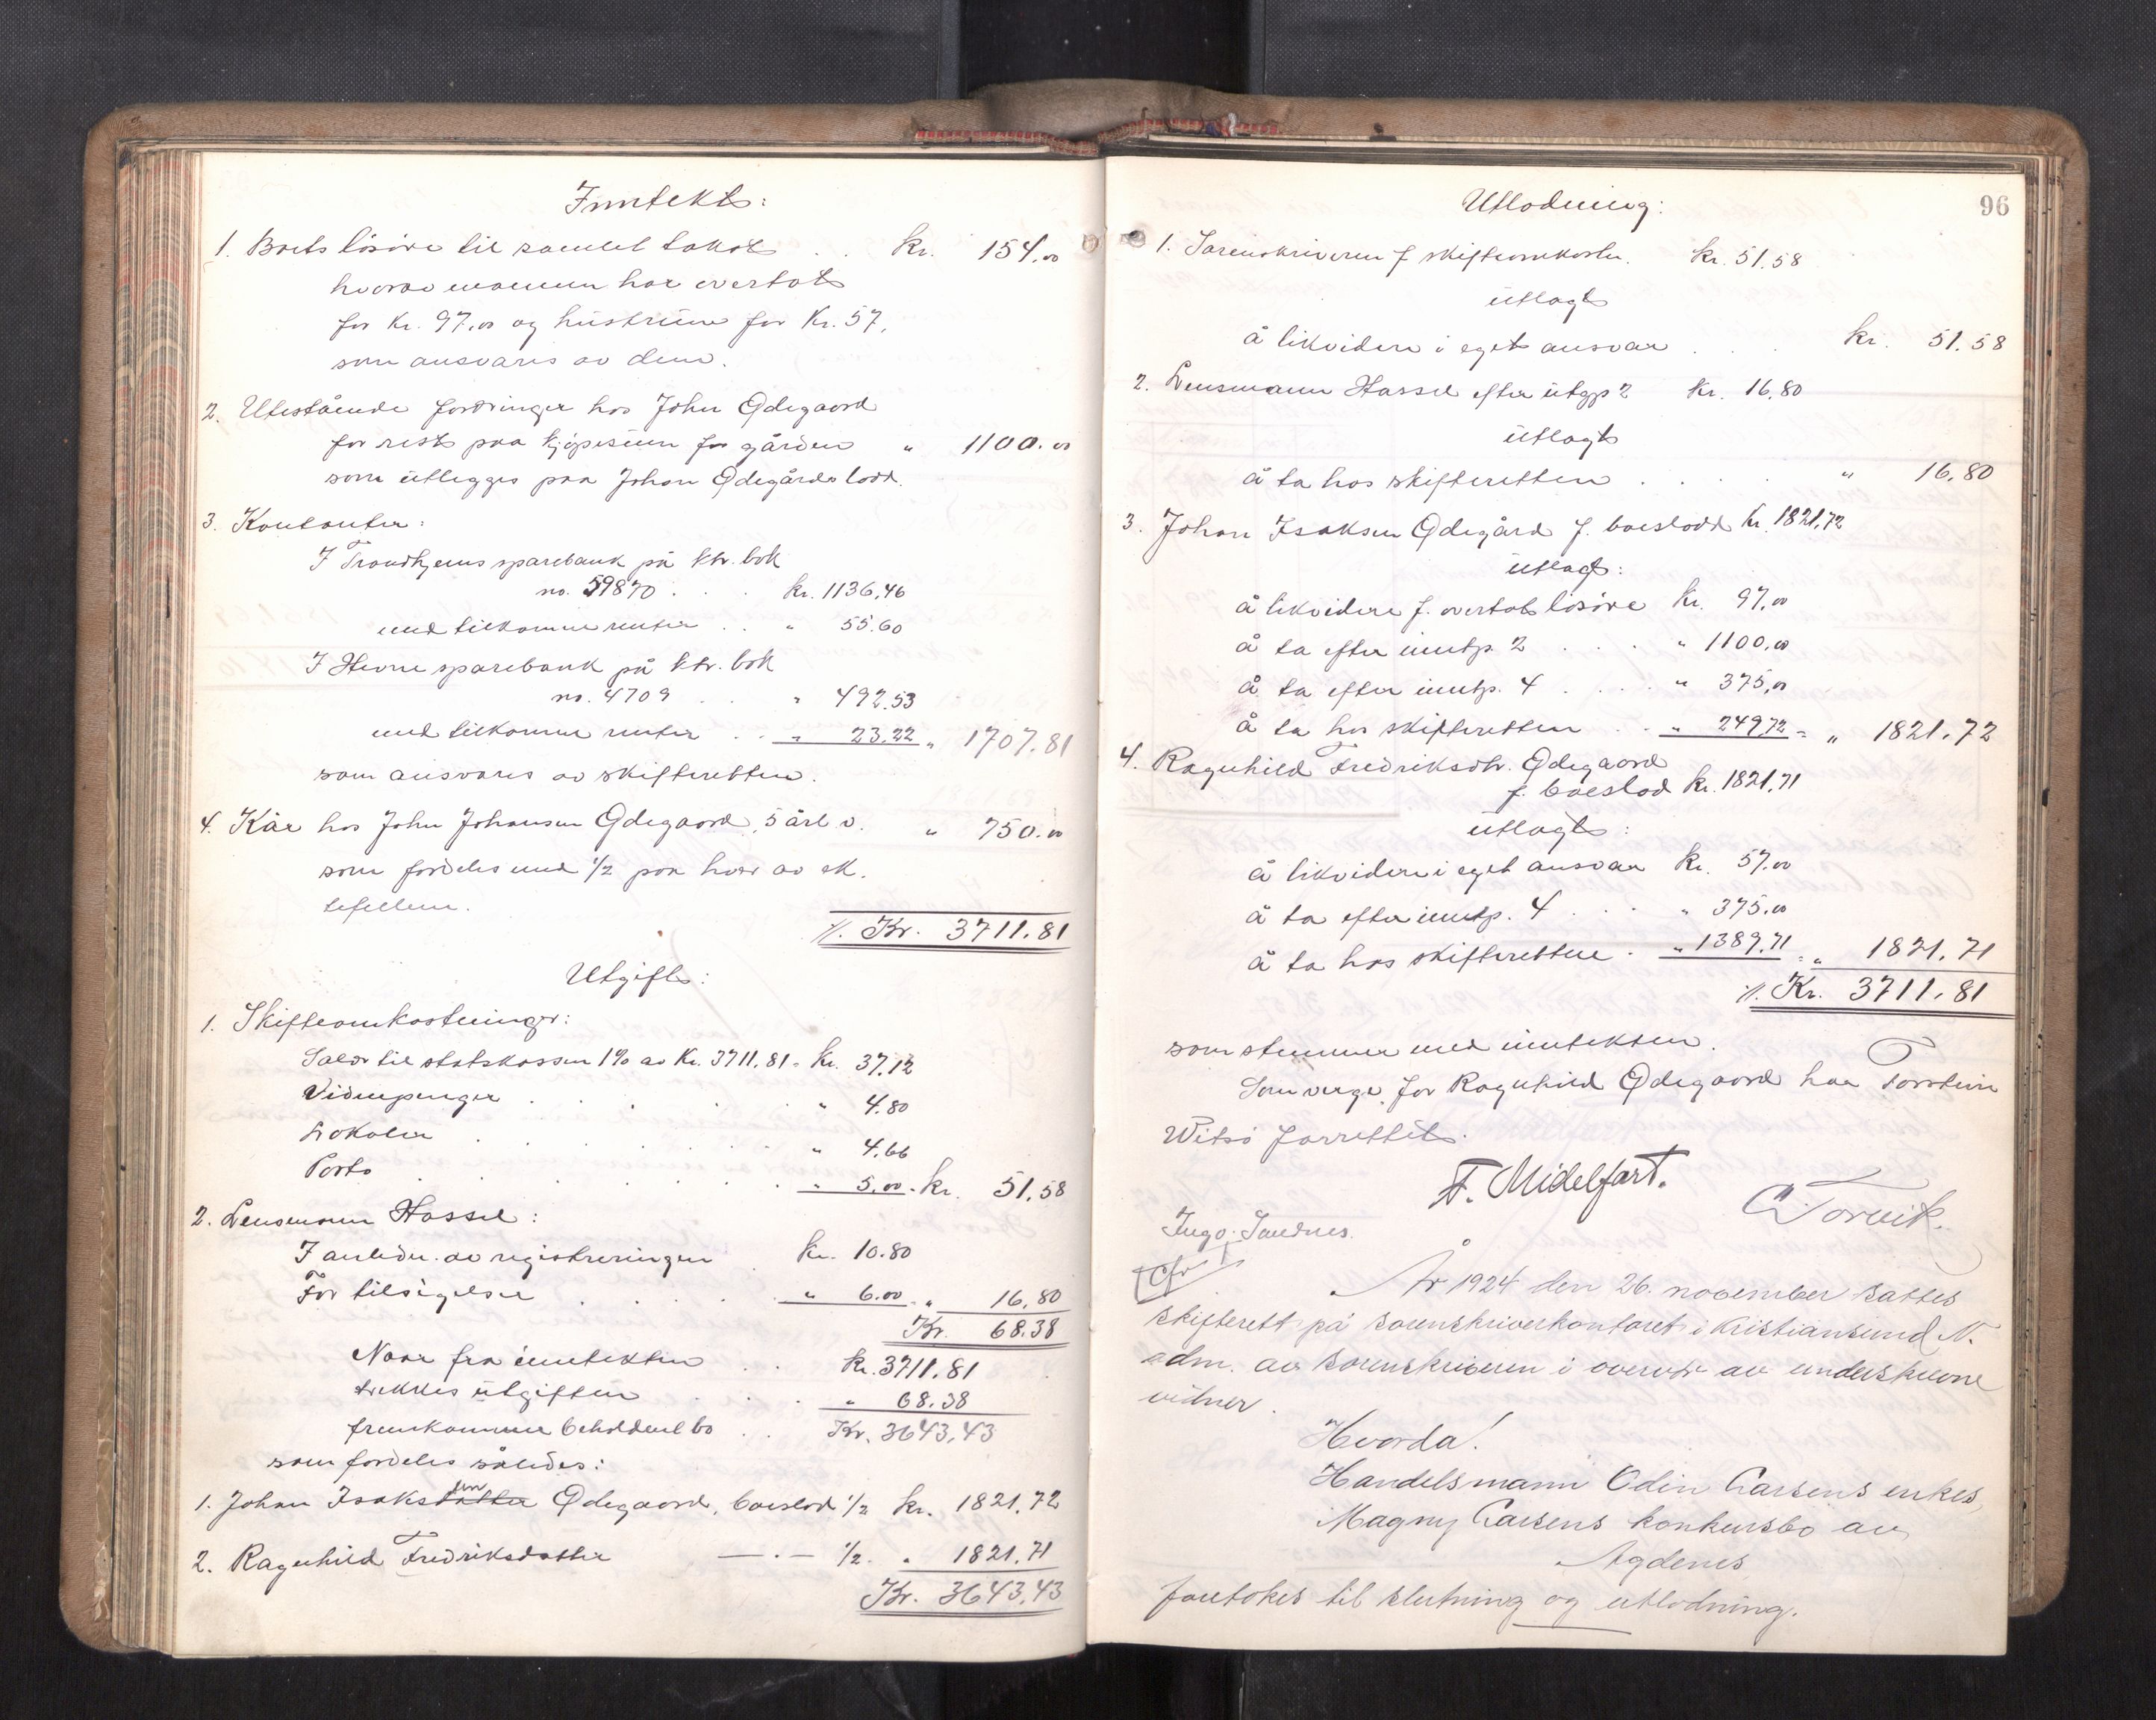 Inntekt:
1. Boets lösöre til samlet takst . . kr. 154.00
hvorav mannen har overtat
for kr. 97,00 og hustruen for Kr. 57,
som ansvares av dem.
2. Utestående fordringer hos John Ødegaard
for rest paa kjøpesum for gården " 1100.00
som utlegges paa Johan Ødegårds lodd.
3. Kontanter:
I Trondhjems sparebank på ktr. bok
no. 59870 . . . kr. 1136,46
med tilkomne renter . . " 55.60
I Hevne sparebank på ktr. bok
no. 4709 . . " 492.53
med tilkomne renter . . " 23.22 " 1707.81
som ansvares av skifteretten.
4. Kår hos John Johansen Ødegaard, 5 årl. v. " 750.00
som fordeles med 1/2 paa hver av ek-
tefellene.
./. Kr. 3711.81
Utgift:
1. Skifteomkostninger:
Salær til statskassen 1% av Kr. 3711.81 = kr. 37.12
Vidnepenger . . . . " 4.80
Lokaler . . . . " 4.66
Porto . . . . " 5.00 - kr. 51.58
2. Lensmann Hassel:
I anledn. av registreringen . kr. 10.80
For tilsigelse . . . . " 6.00 " 16.80
Kr. 68.38
Naar fra inntekten . . kr. 3711.81
trekkes utgiften . . . " 68.38
fremkommer beholdent bo . . Kr. 3643.43
som fordeles således:
1. Johan Isaksdatter sen Ødegaard, boeslod 1/2 kr. 1821.72
2. Ragnhild Fredriksdatter —.— 1/2 . " 1821.71
Kr. 3643.43
96
Utlodning:
1. Sorenskriveren f. skifteomkostn. kr. 51.58
utlagt
å likvidere i eget ansvar . . . kr. 51.58
2. Lensmann Hassel efter utgp 2 kr. 16.80
utlagt
å ta hos skifteretten . . . . " 16.80
3. Johan Isaksen Ødegård f. boeslodd kr. 1821,72
utlagt:
å likvidere f. overtat lösöre kr. 97,00
å ta efter inntp. 2 . . . " 1100,00
å ta efter inntp. 4 . . . . " 375,00
å ta hos skifteretten . . " 249.72 = " 1821.72
4. Ragnhild Fredriksdtr. Ødegaard
f. boeslod kr. 1821,71
utlagt:
å likvidere i eget ansvar kr. 57.00
å ta efter inntp. 4 . . . " 375.00
å ta hos skifteretten . " 1389.71 = " 1821.71
./. Kr. 3711.81
som stemmer med inntekten.
Som verge for Ragnhild Ødegaard har Torstein
Witsö forrettet.
F. Midelfart.
C Torvik.
Ingv. Sandnes.
År 1924 den 26. november sattes
skifterett på sorenskriverkontoret i Kristiansund N.
adm. av sorenskriveren i overvær av underskrevne
vidner.
Hvorda!
Handelsmann Odin Larsens enkes,
Magny Larsens konkursbo av
Agdenes
foretokes til slutning og utlodning.